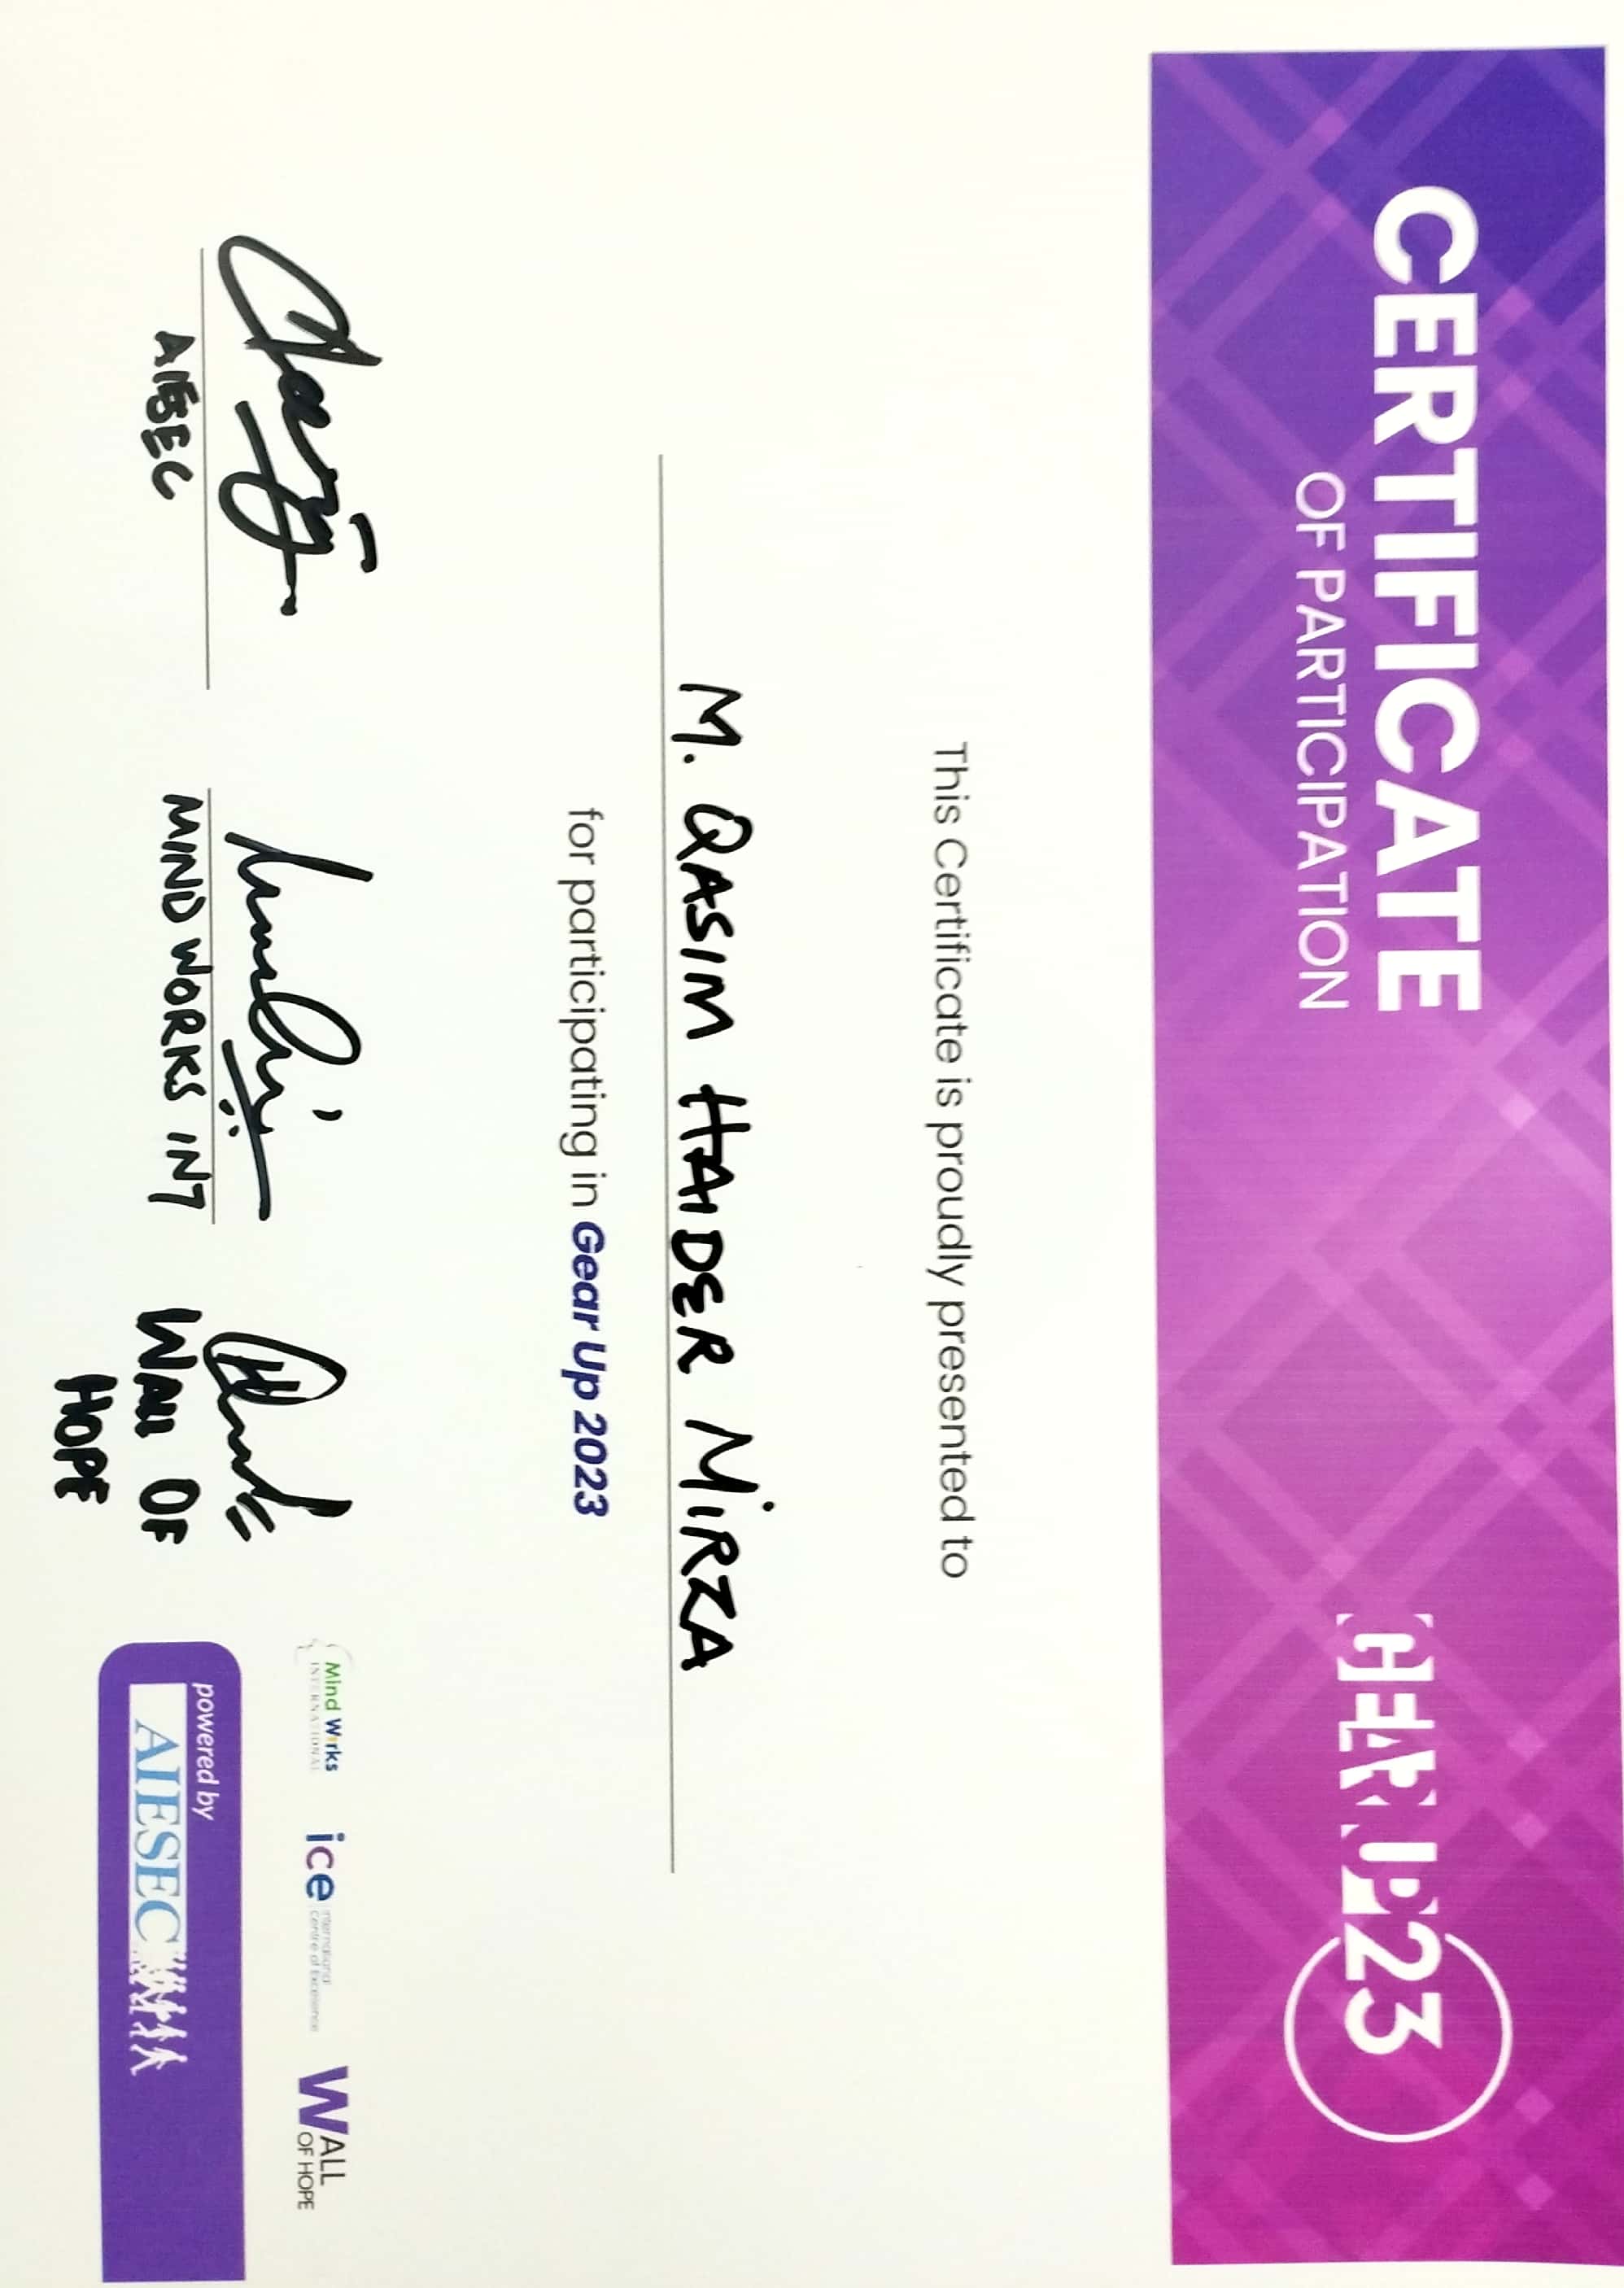 CERTIFICATE
OF PARTICIPATION
GEAR UP23
This Certificate is proudly presented to
M. QASIM HAIDER MIRZA
for participating in Gear Up 2023
AIESEC
MIND WORKS INT
WALL OF
HOPE
Mind Works
INTERNATIONAL
ice International
Centre of Excellence
WALL
OF HOPE
powered by
AIESEC